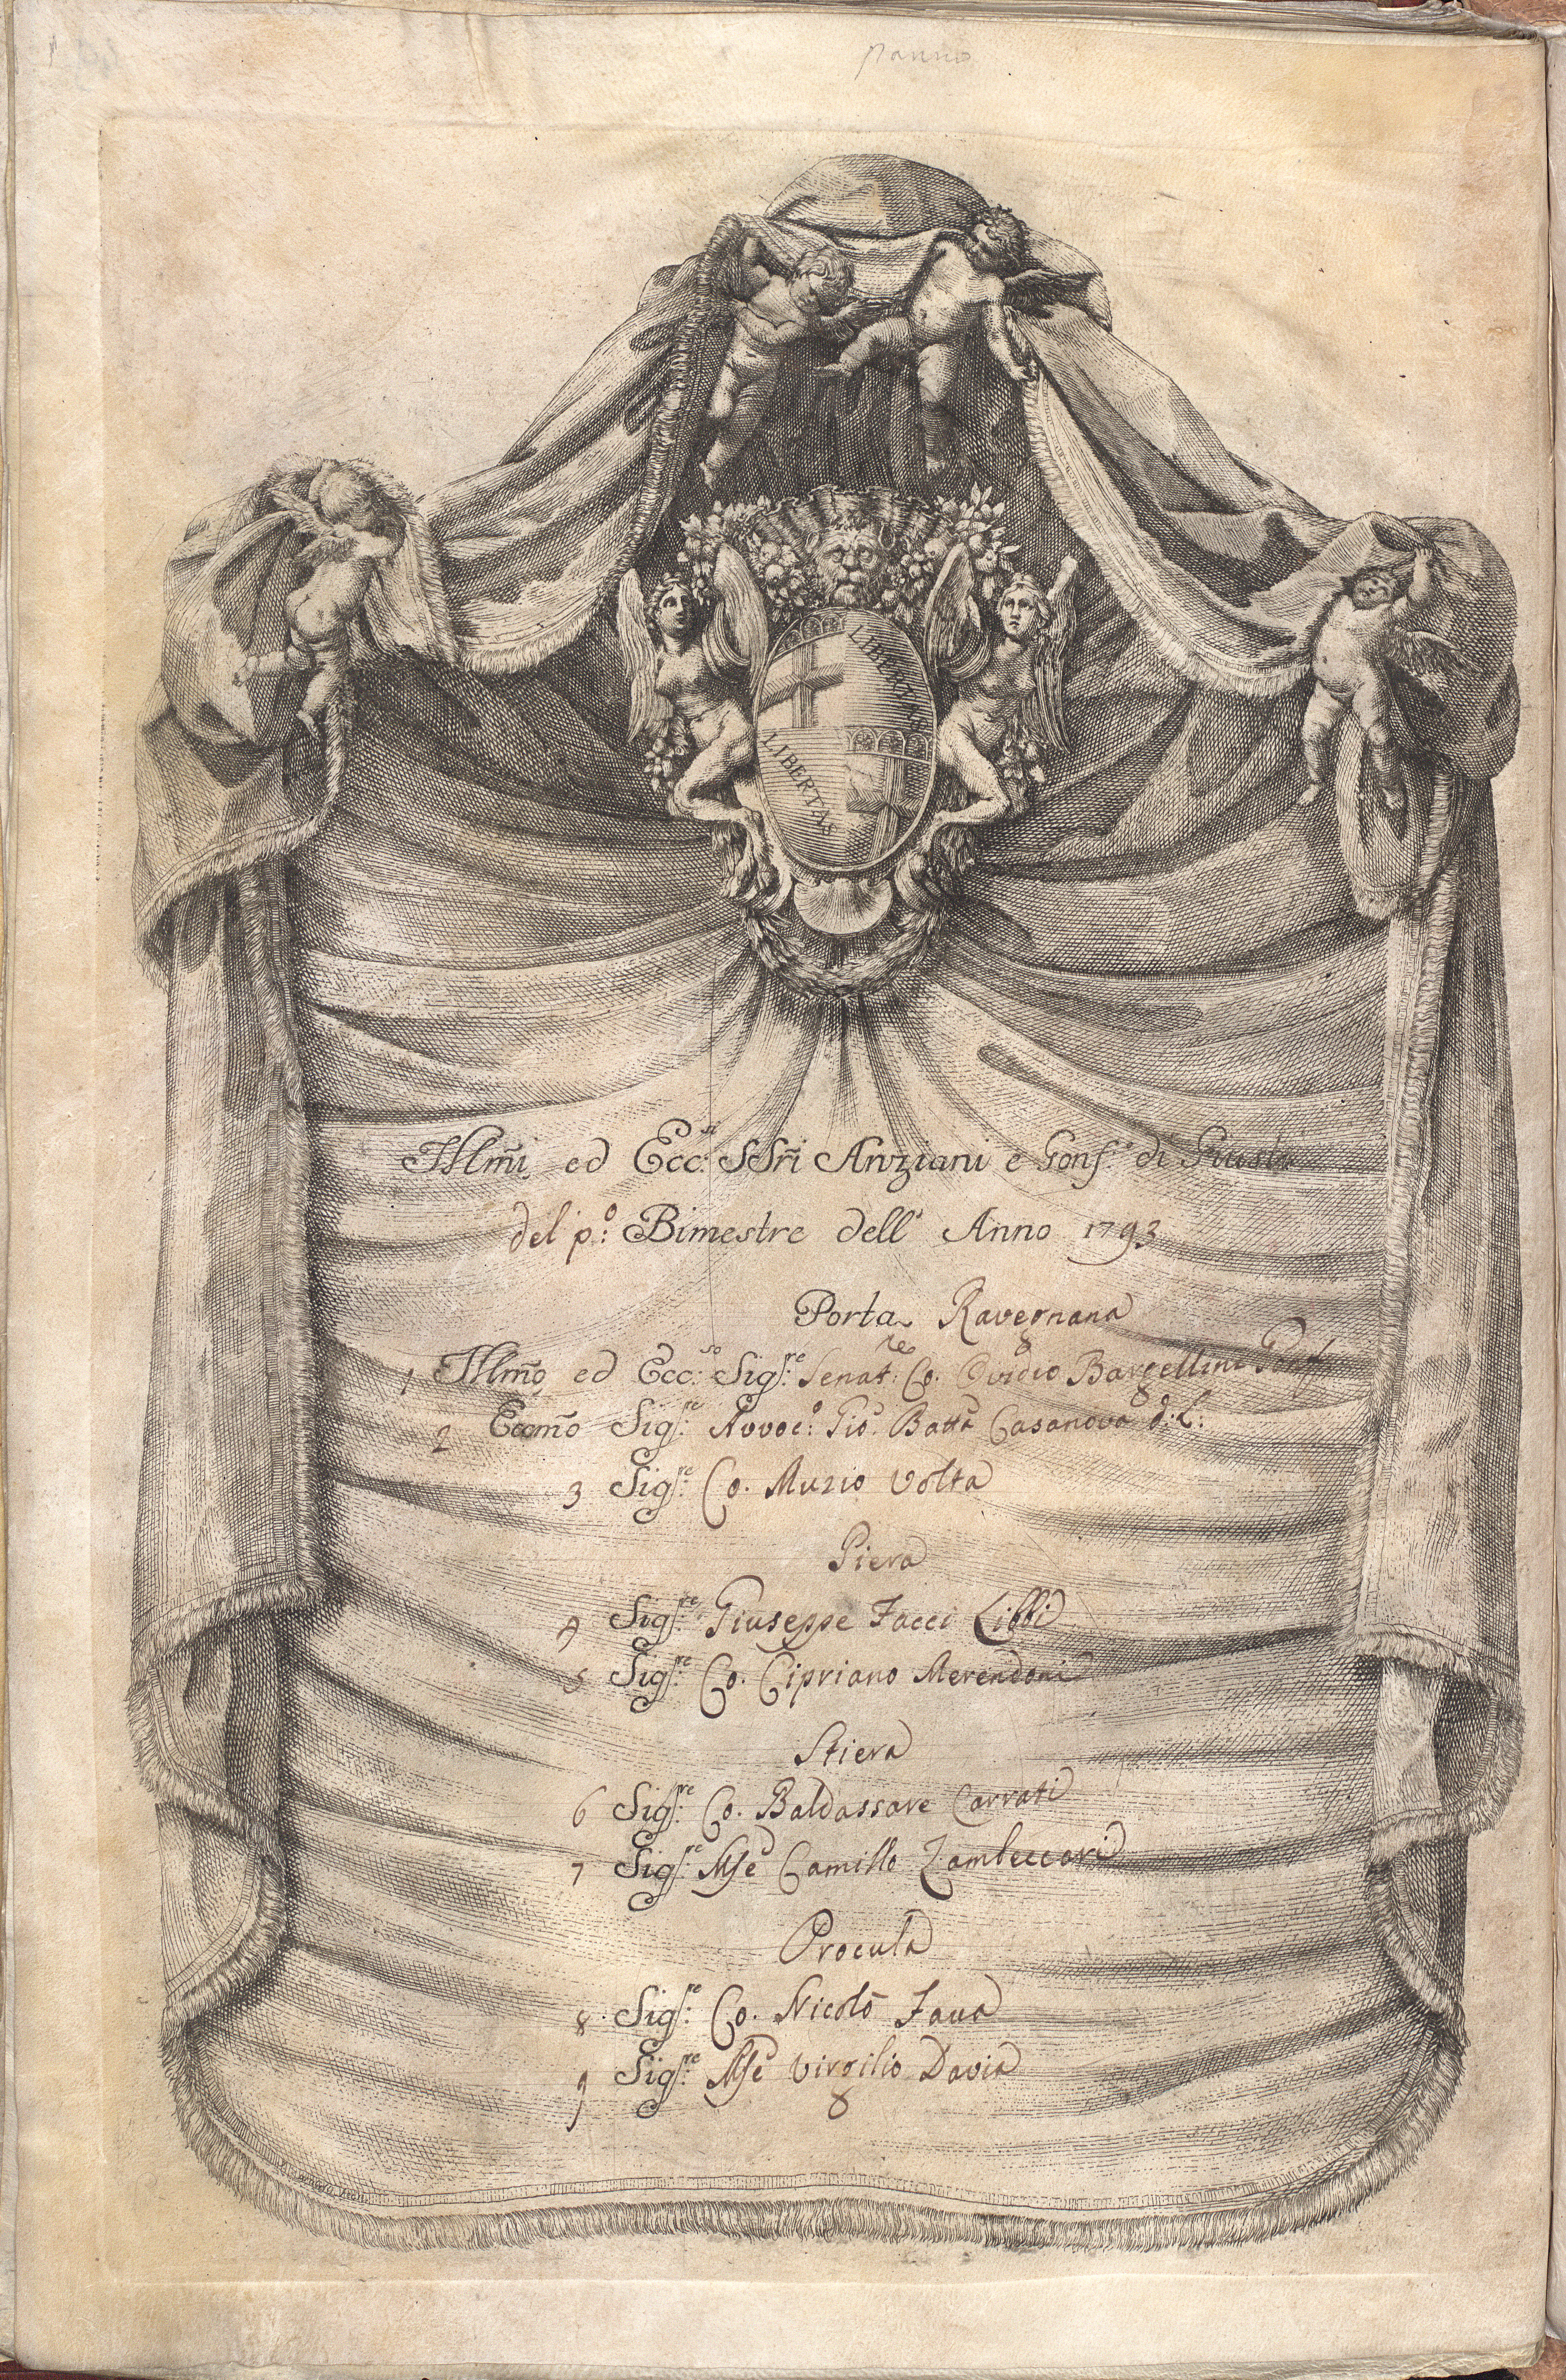 panno
LIBERTAS
LIBERTAS
Illm̃i ed Ecc:si SSri Anziani e Gonf.e di Giusta
del p:o Bimestre dell' Anno 1793
Porta Ravegnana
1 Illmo ed Ecc:so Sig:re Senat:re Co. Ovidio Bargellini Gonf.
2 Eccmo Sig:re Avvoc:o Gio. Batta Casanova d: L:
3 Sig:re Co. Muzio Volta
Piera
4 Sig:re Giuseppe Facci Libbi
5 Sig:re Co. Cipriano Merendoni
Stiera
6 Sig:re Co. Baldassare Carrati
7 Sig:re Mse Camillo Zambeccari
Procula
8 Sig:re Co. Nicolò Fava
9 Sig:re Mse Virgilio Davia